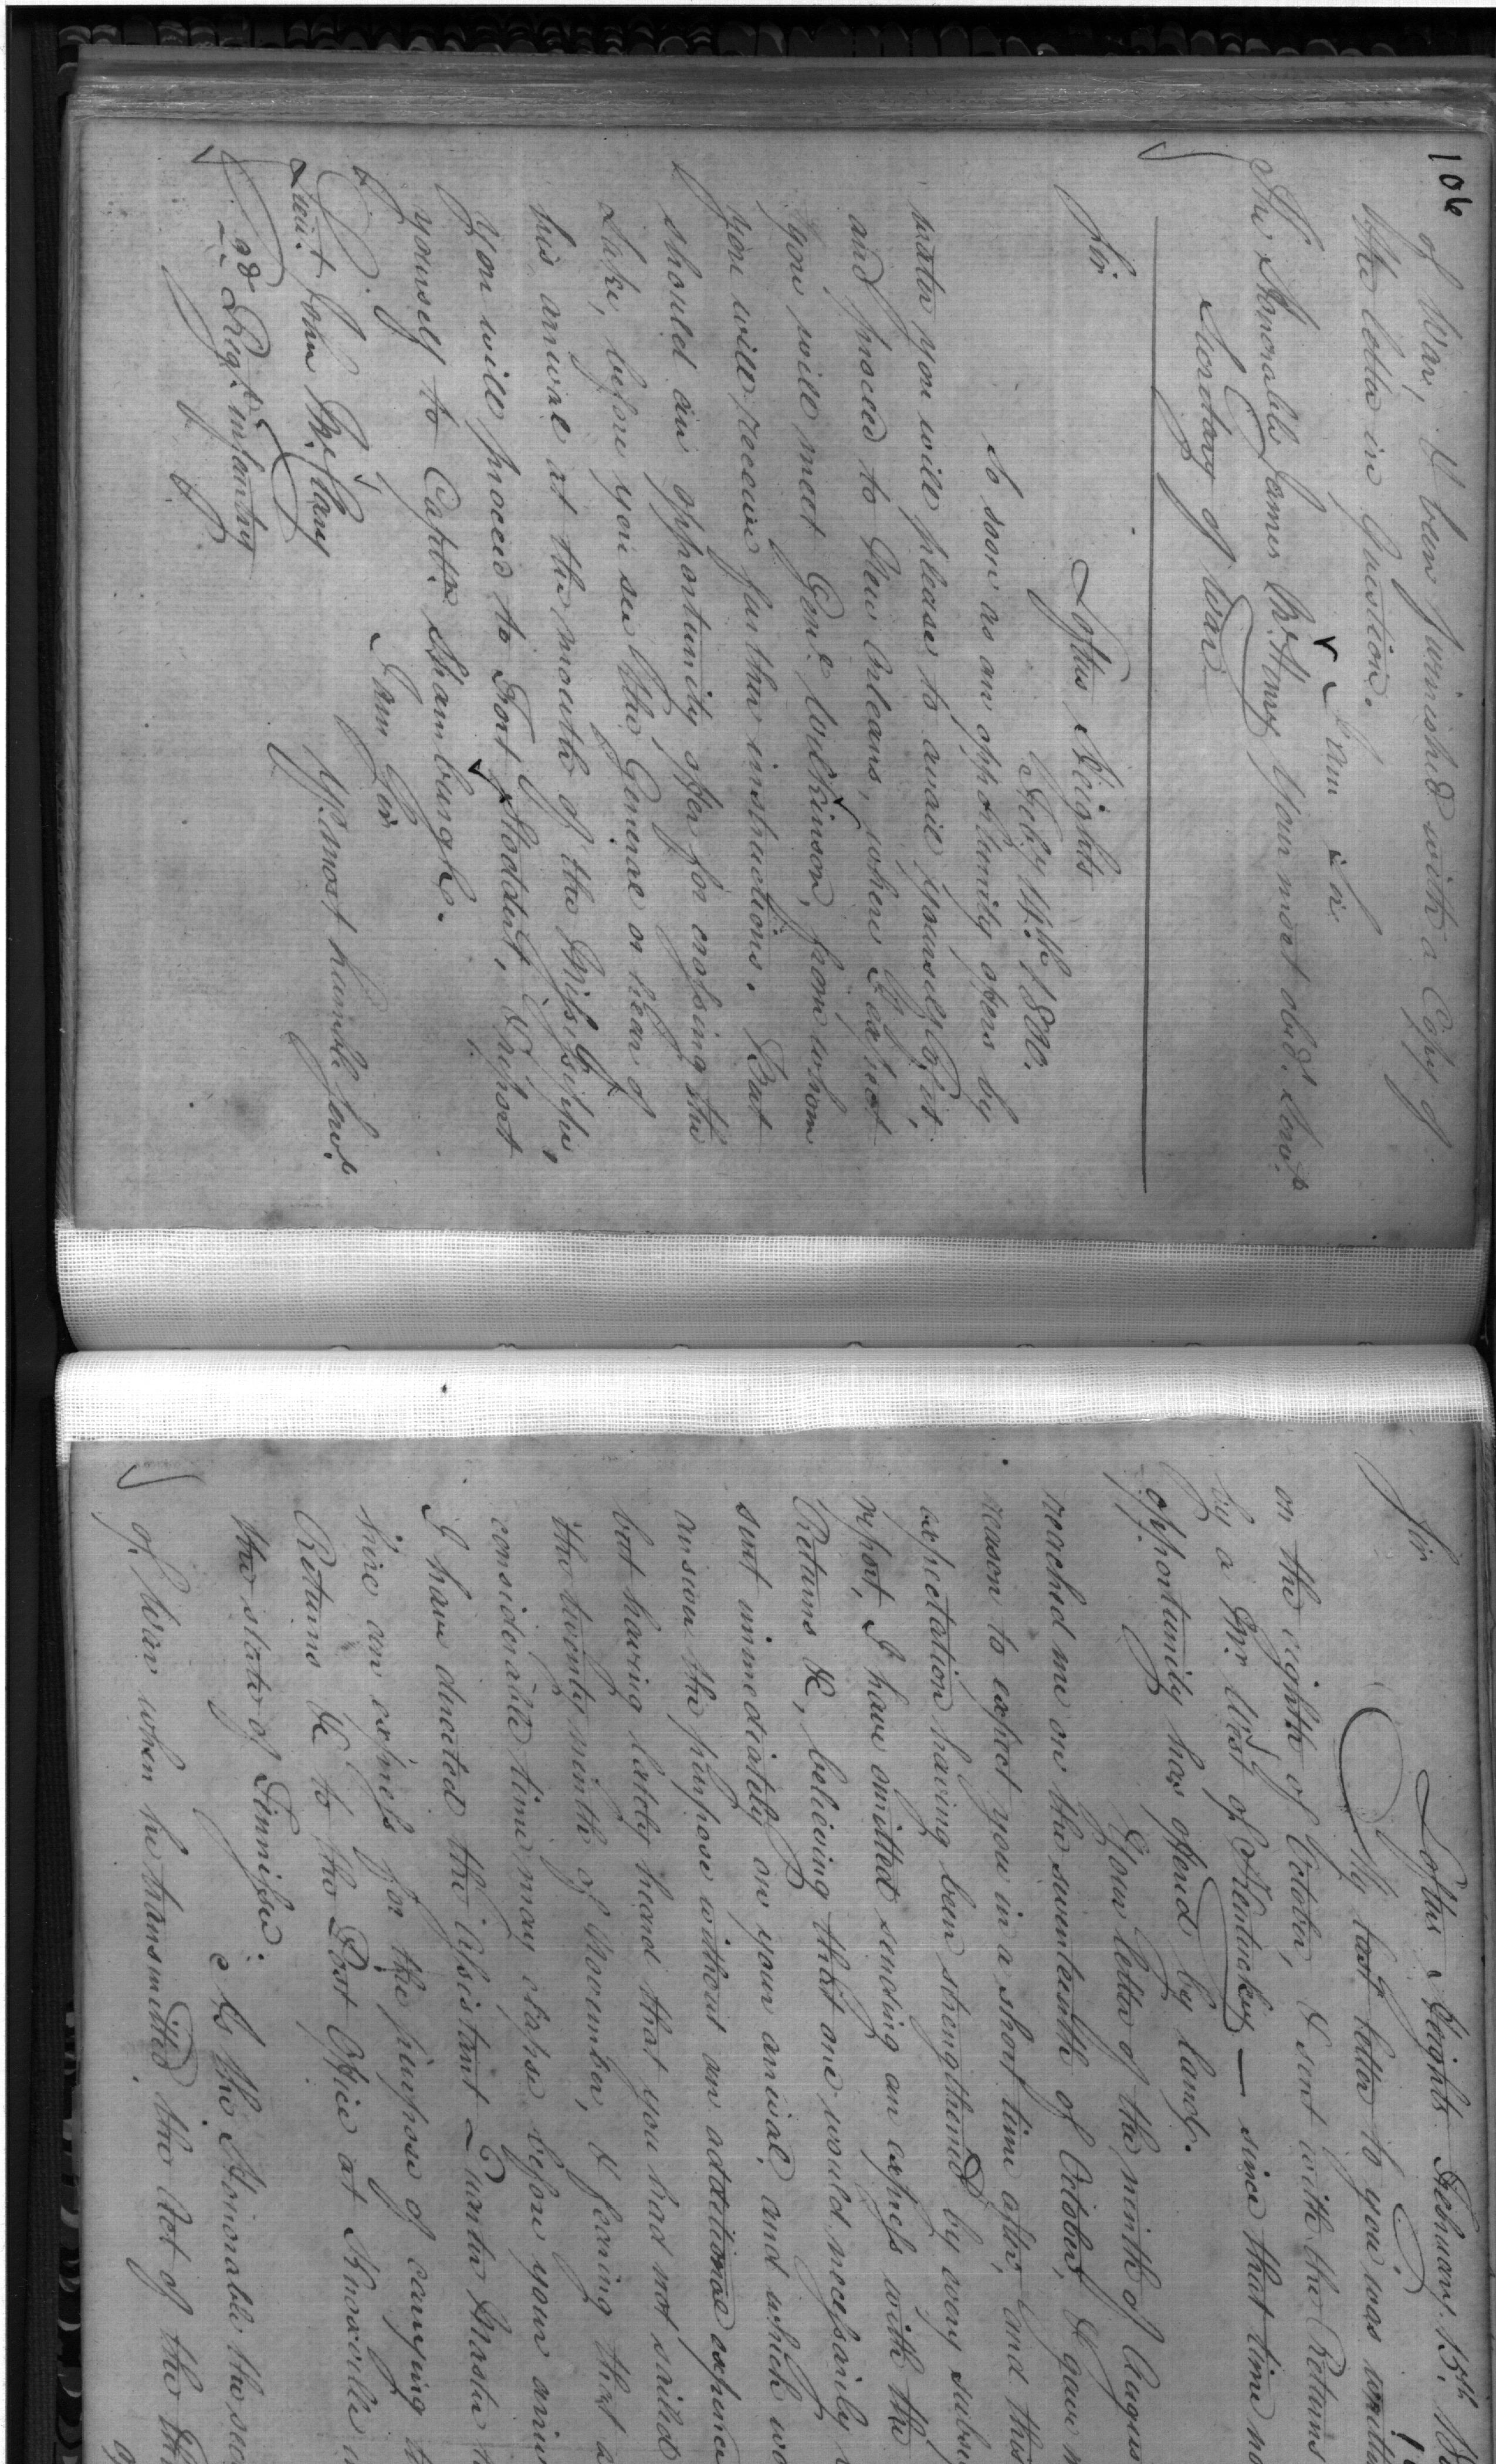 106
of War, I been furnished with a Copy of
the letter in Question.
I am Sir
Your most obed. Serv.t
The Honorable James McHenry
Secretary of War
Loftus Heights
Feby 14th 1800.
Sir
So soon as an opportunity offers by
water you will please to avail yourself of it,
and proceed to New Orleans, where I expect
you will meet Genl Wilkinson, from whom
you will receive further instructions. But
should an opportunity offer for crossing the
Lake, before you see the General or hear of
his arrival at the mouth of the Missisippi,
you will proceed to Fort Stoddert, & report
yourself to Captn. Shamburgh.
I am Sir
Yr. most humble Servt.
Lieut. John McClary
2d Regt. infantry
Loftus Heights February 15th
Sir
My last letter to you was
on the eighth of October, & sent with the Returns
by a Mr. West of Kentucky — since that time no
opportunity has offered by land.
Your letter of the ninth of
reached me on the seventeenth of October, & gave
reason to expect you in a short time after, and this
expectation having been strengthened by every
report, I have omitted sending an express with the
Returns &c, believing that one would necessarily
sent immediately on your arrival, and which
answer the purpose without an additional
but having lately heard that you had not sailed
the twenty ninth of November, & fearing that a
considerable time may elapse before your
I have directed the Assistant Quarter Master
hire an express for the purpose of carrying
Returns &c to the Post Office at Knoxville
the state of Tennissee.
As the Honorable the
of War when he transmitted the Act of the